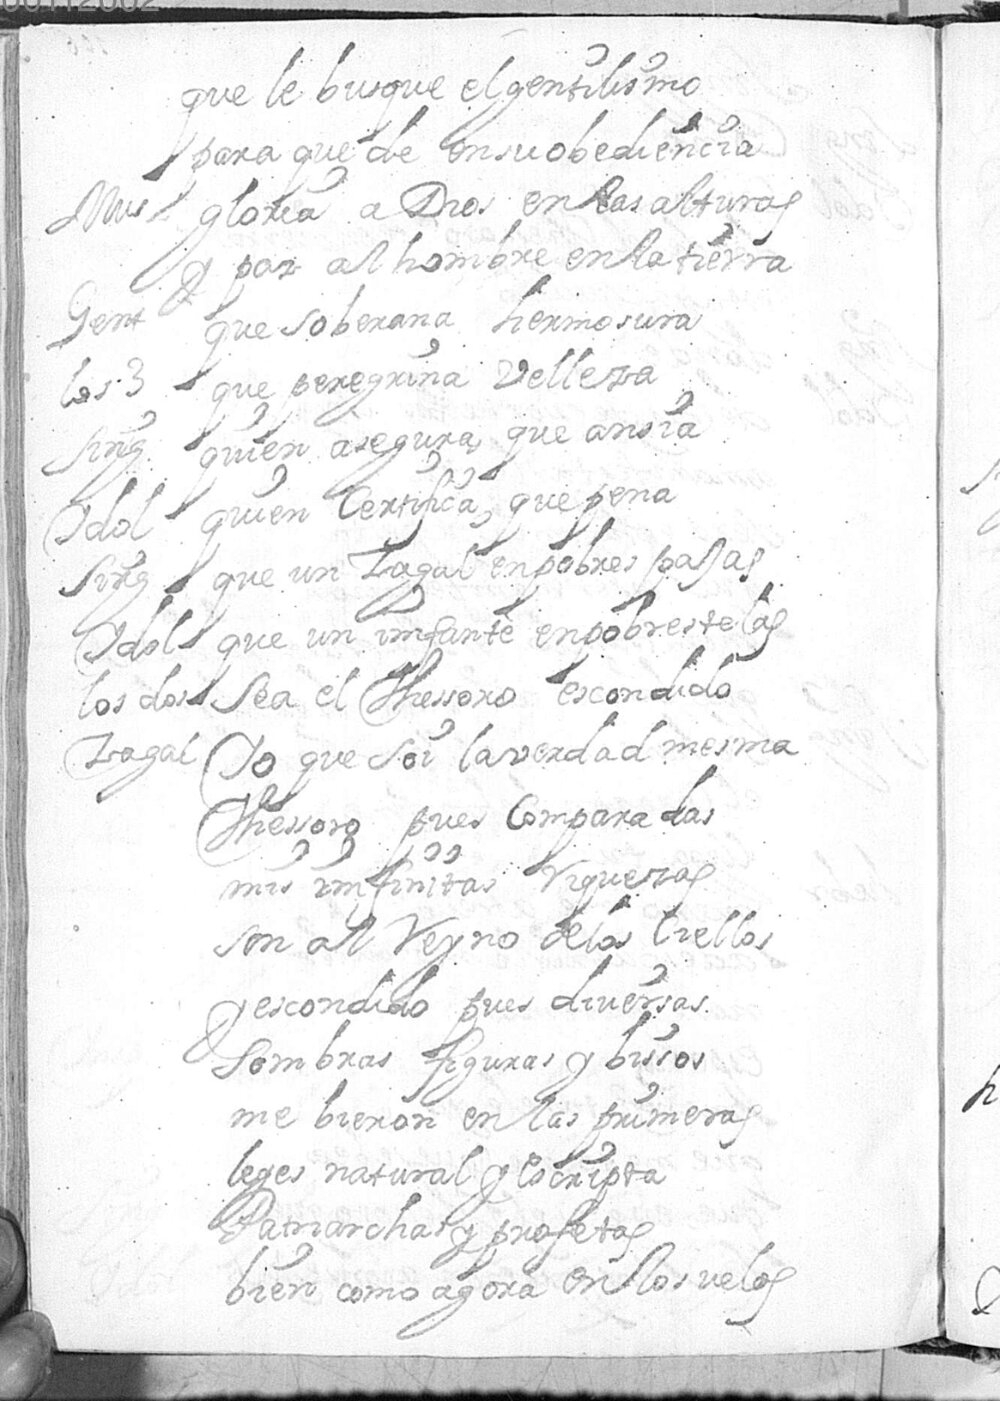 00112002
que le busque el gentilismo
para que de en su obediencia
Mus gloria a Dios en las alturas
y paz al hombre en la tierra
Gent que soberana hermosura
los 3 que peregrina velleza
Sing quien asegura, que ansia
Idol quien Certifica, que pena
Sing que un Zagal en pobres pajas
Idol que un imfante en pobres telas
los dos Sea el Thessoro escondido
Zagal Yo que soi la verdad mesma
Thessoro pues Comparadas
mis imfinitas riquezas
son al Reyno de los Ciellos
y escondido pues diuersas
sombras figuras y bissos
me bieron en las primeras
leyes natural y escripta
Patriarchas y profetas
bien como agora en los velos